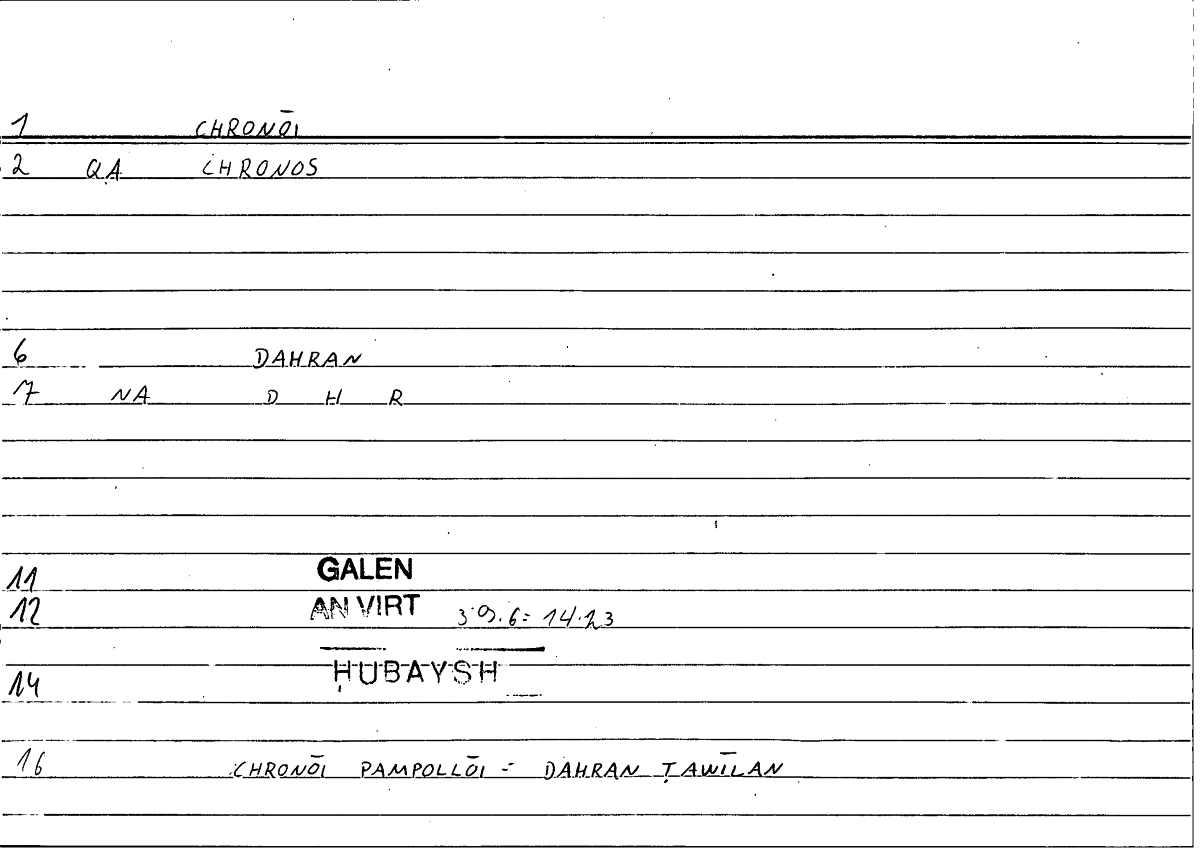 1 CHRONŌI
2 QA CHRONOS
6 DAHRAN
7 NA D H R
11 GALEN
12 AN VIRT 39.6 = 14.23
14 ḤUBAYSH
16 CHRONŌI PAMPOLLŌI = DAHRAN ṬAWĪLAN